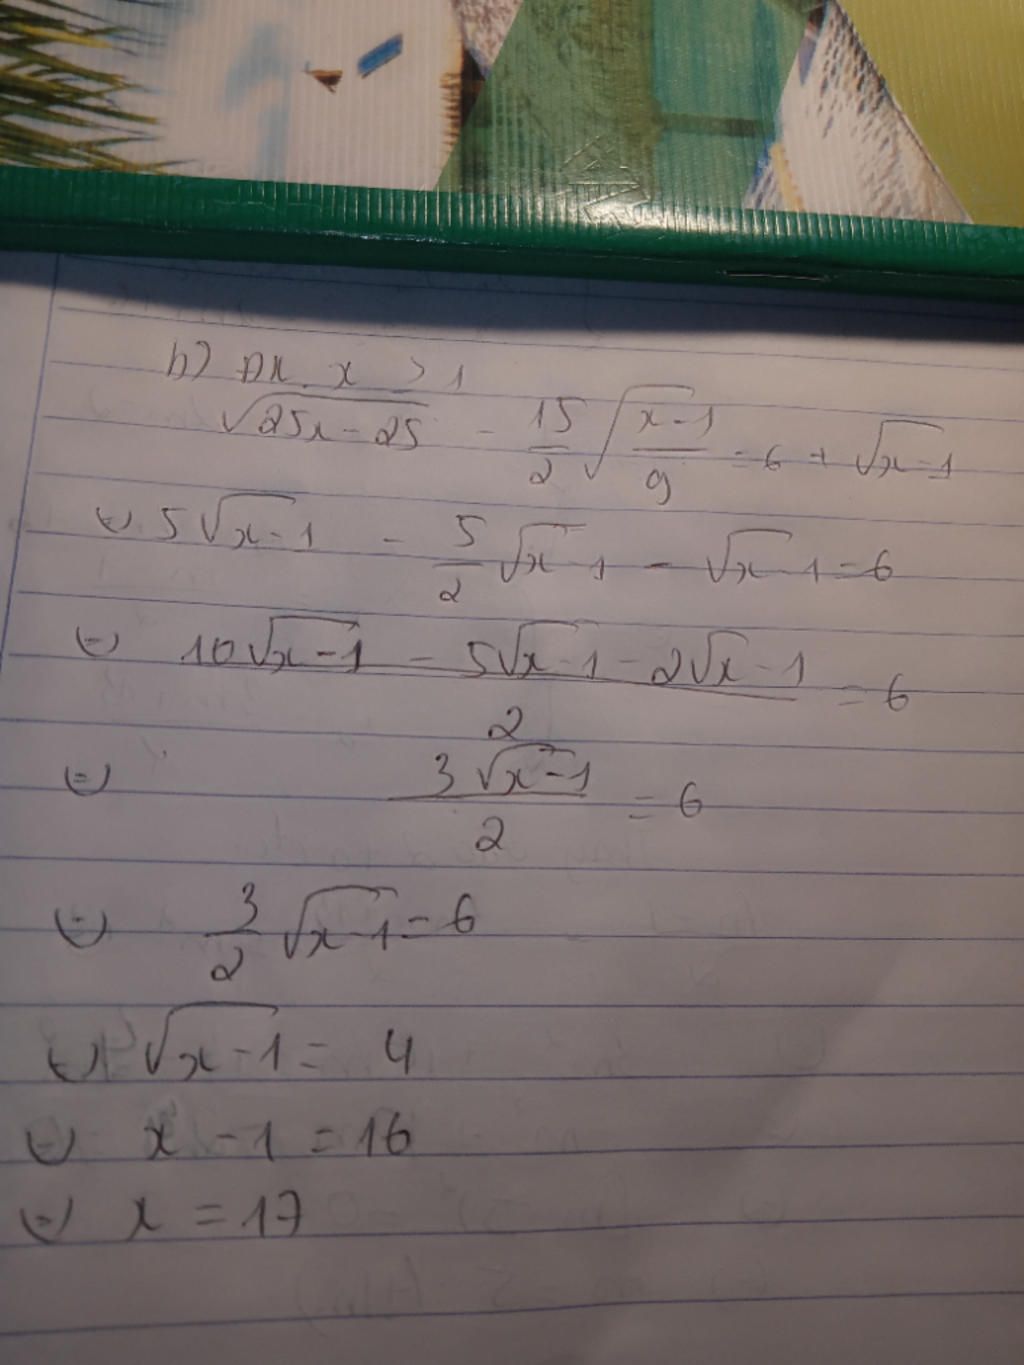 b) ĐK x > 1
√(25x-25) - 15/2 √((x-1)/9) = 6 + √(x-1)
(=) 5√(x-1) - 5/2 √(x-1) - √(x-1) = 6
(=) (10√(x-1) - 5√(x-1) - 2√(x-1))/2 = 6
(=) (3√(x-1))/2 = 6
(=) 3/2 √(x-1) = 6
(=) √(x-1) = 4
(=) x - 1 = 16
(=) x = 17